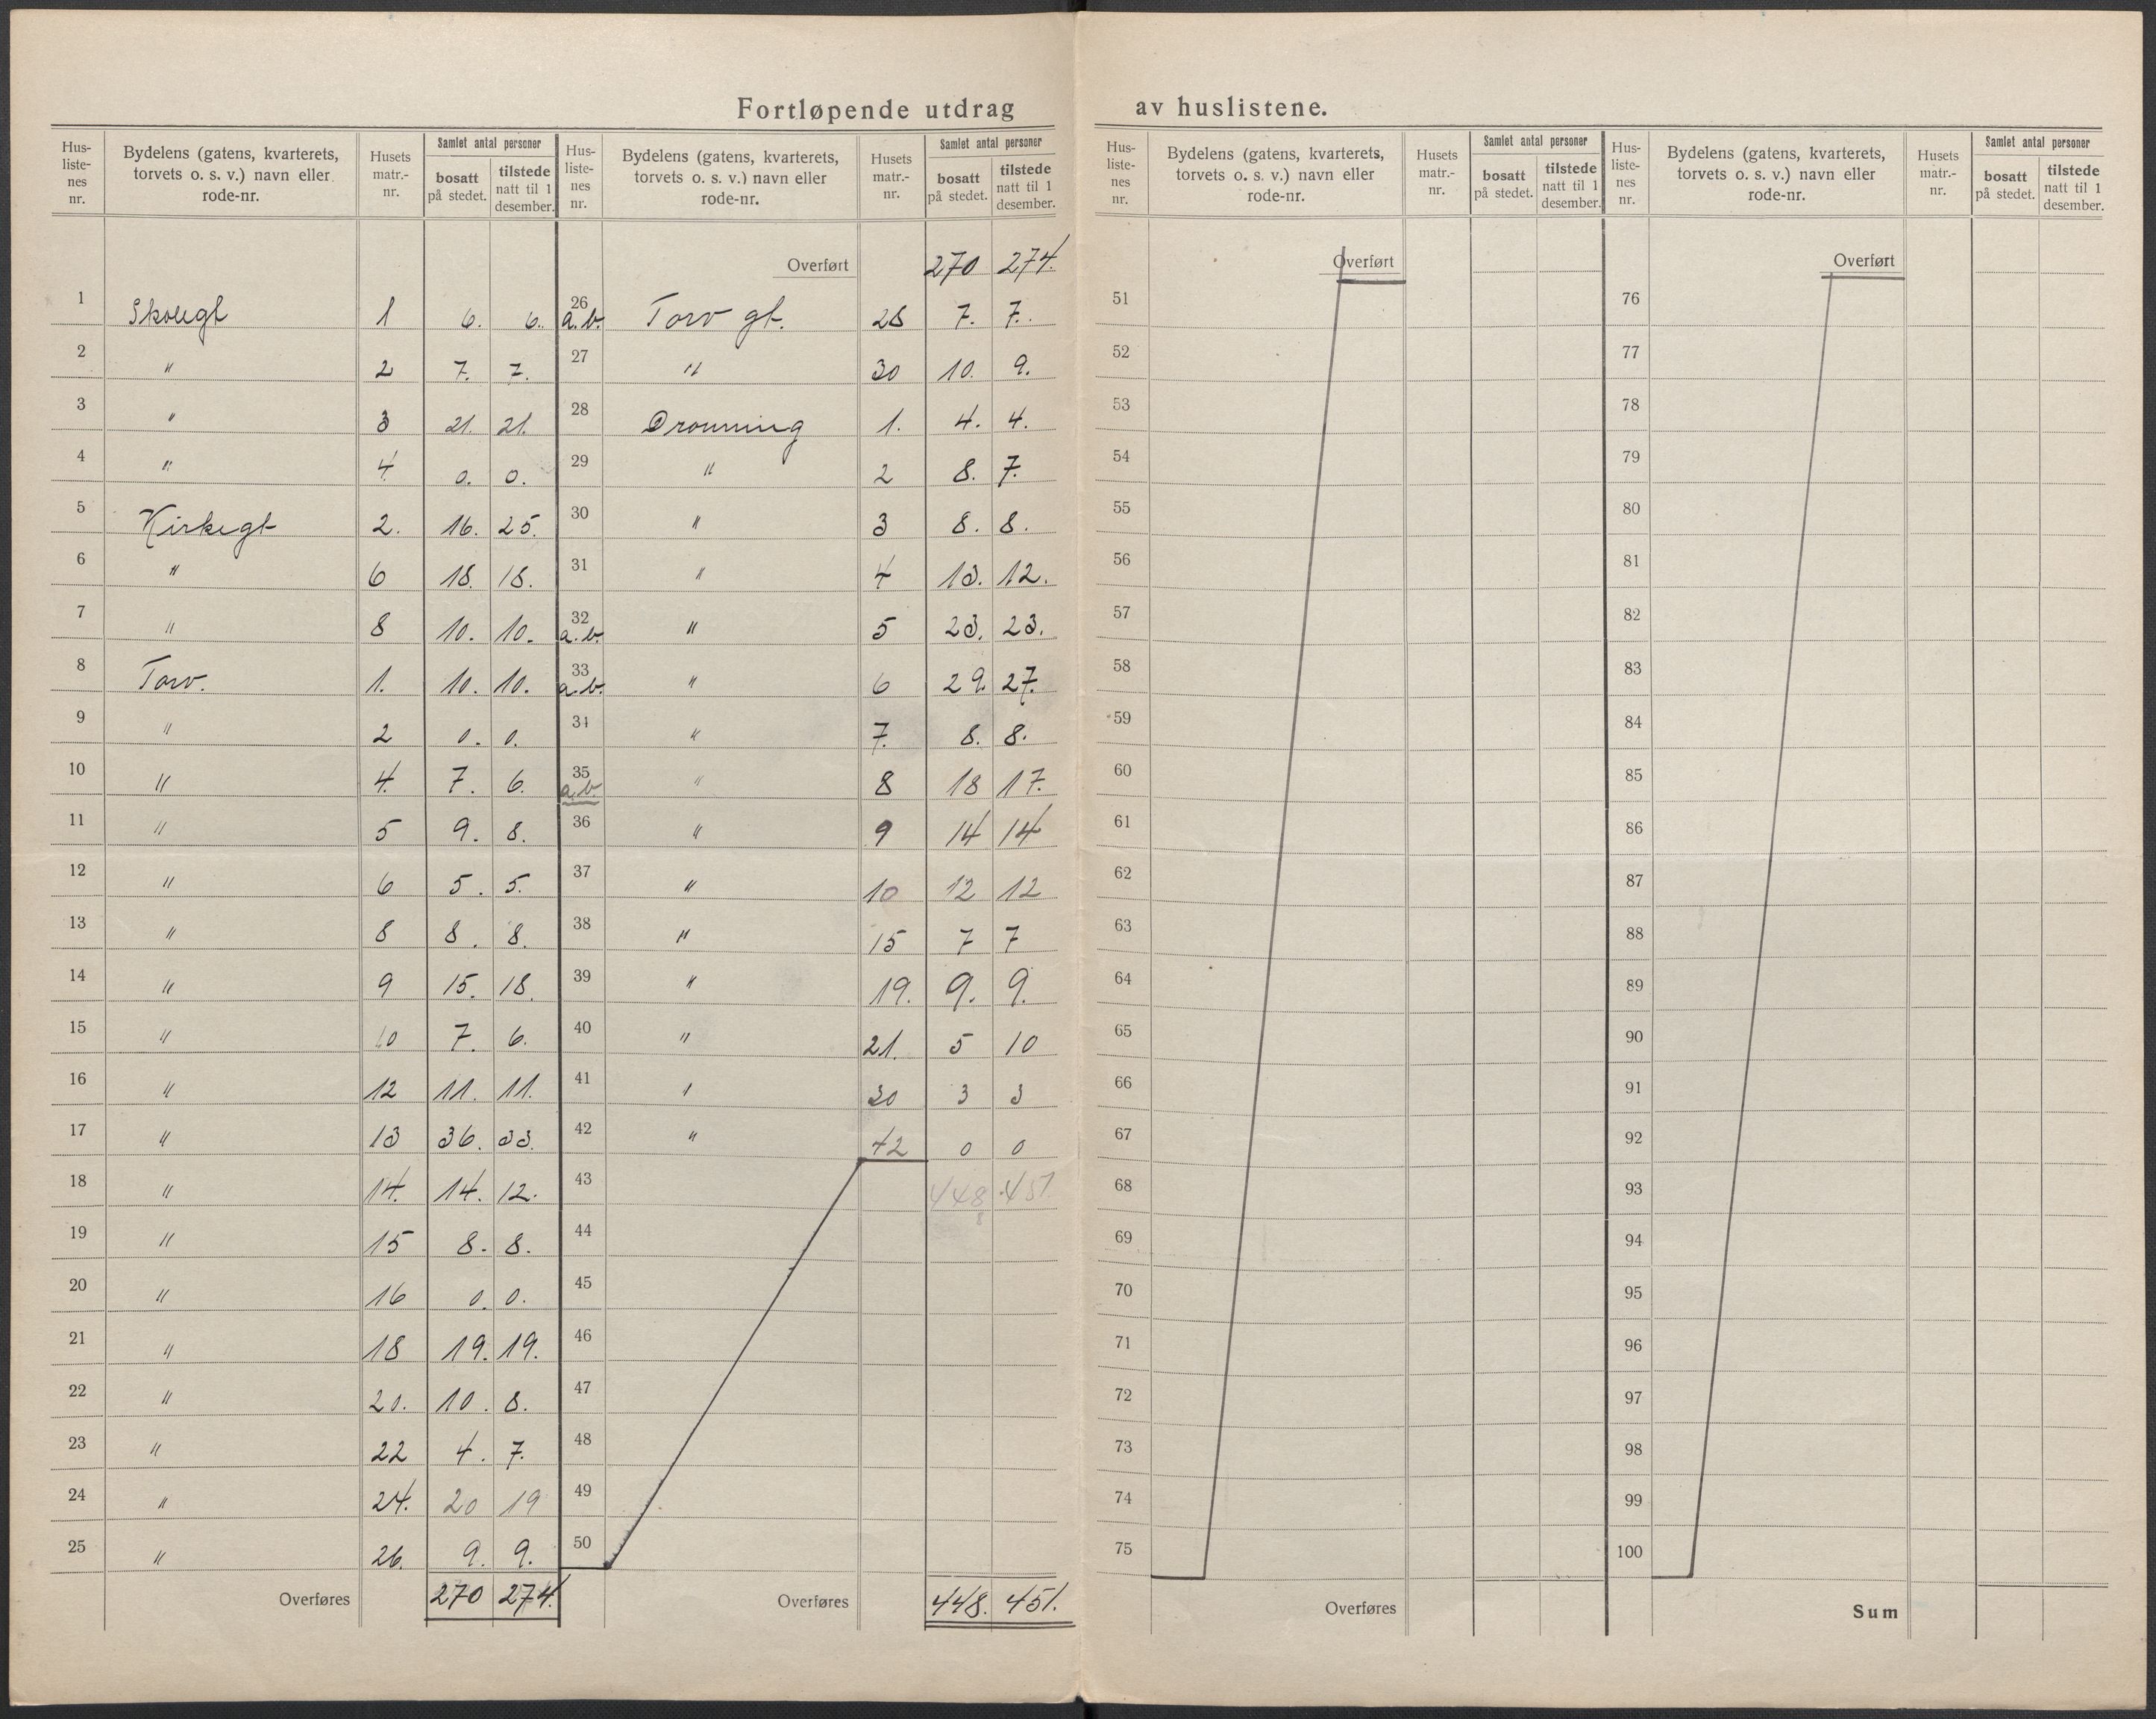 Fortløpende utdrag av huslistene.
Hus-listenes nr. | Bydelens (gatens, kvarterets, torvets o. s. v.) navn eller rode-nr. | Husets matr.-nr. | Samlet antal personer bosatt på stedet. | tilstede natt til 1 desember.
1 Skolegt 1 6. 6.
2 " 2 7. 7.
3 " 3 21. 21.
4 " 4 0. 0.
5 Kirkegt 2. 16. 25.
6 " 6 18. 18.
7 " 8 10. 10.
8 Torv. 1. 10. 10.
9 " 2 0. 0.
10 " 4. 7. 6.
11 " 5 9. 8.
12 " 6 5. 5.
13 " 8 8. 8.
14 " 9 15. 18.
15 " 10 7. 6.
16 " 12 11. 11.
17 " 13 36. 33.
18 " 14. 14. 12.
19 " 15 8. 8.
20 " 16 0. 0.
21 " 18 19. 19.
22 " 20. 10. 8.
23 " 22 4. 7.
24 " 24. 20 19
25 " 26. 9. 9.
Overføres 270 274.
Hus-listenes nr. | Bydelens (gatens, kvarterets, torvets o. s. v.) navn eller rode-nr. | Husets matr.-nr. | Samlet antal personer bosatt på stedet. | tilstede natt til 1 desember.
Overført 270 274.
26 a.b. Torv gt. 28 7. 7.
27 " 30 10. 9.
28 Dronning 1. 4. 4.
29 " 2 8. 7.
30 " 3 8. 8.
31 " 4 13. 12.
32 a.b. " 5 23. 23.
33 a.b. " 6 29. 27.
34 " 7. 8. 8.
35 a.b. " 8 18 17.
36 " 9 14 14
37 " 10 12 12
38 " 15 7 7
39 " 19. 9. 9.
40 " 21. 5 10
41 " 30 3 3
42 " 42 0 0
43 448 451
8
44
45
46
47
48
49
50
Overføres 448. 451.
Hus-listenes nr. | Bydelens (gatens, kvarterets, torvets o. s. v.) navn eller rode-nr. | Husets matr.-nr. | Samlet antal personer bosatt på stedet. | tilstede natt til 1 desember.
Overført
51
52
53
54
55
56
57
58
59
60
61
62
63
64
65
66
67
68
69
70
71
72
73
74
75
Overføres
Hus-listenes nr. | Bydelens (gatens, kvarterets, torvets o. s. v.) navn eller rode-nr. | Husets matr.-nr. | Samlet antal personer bosatt på stedet. | tilstede natt til 1 desember.
Overført
76
77
78
79
80
81
82
83
84
85
86
87
88
89
90
91
92
93
94
95
96
97
98
99
100
Sum